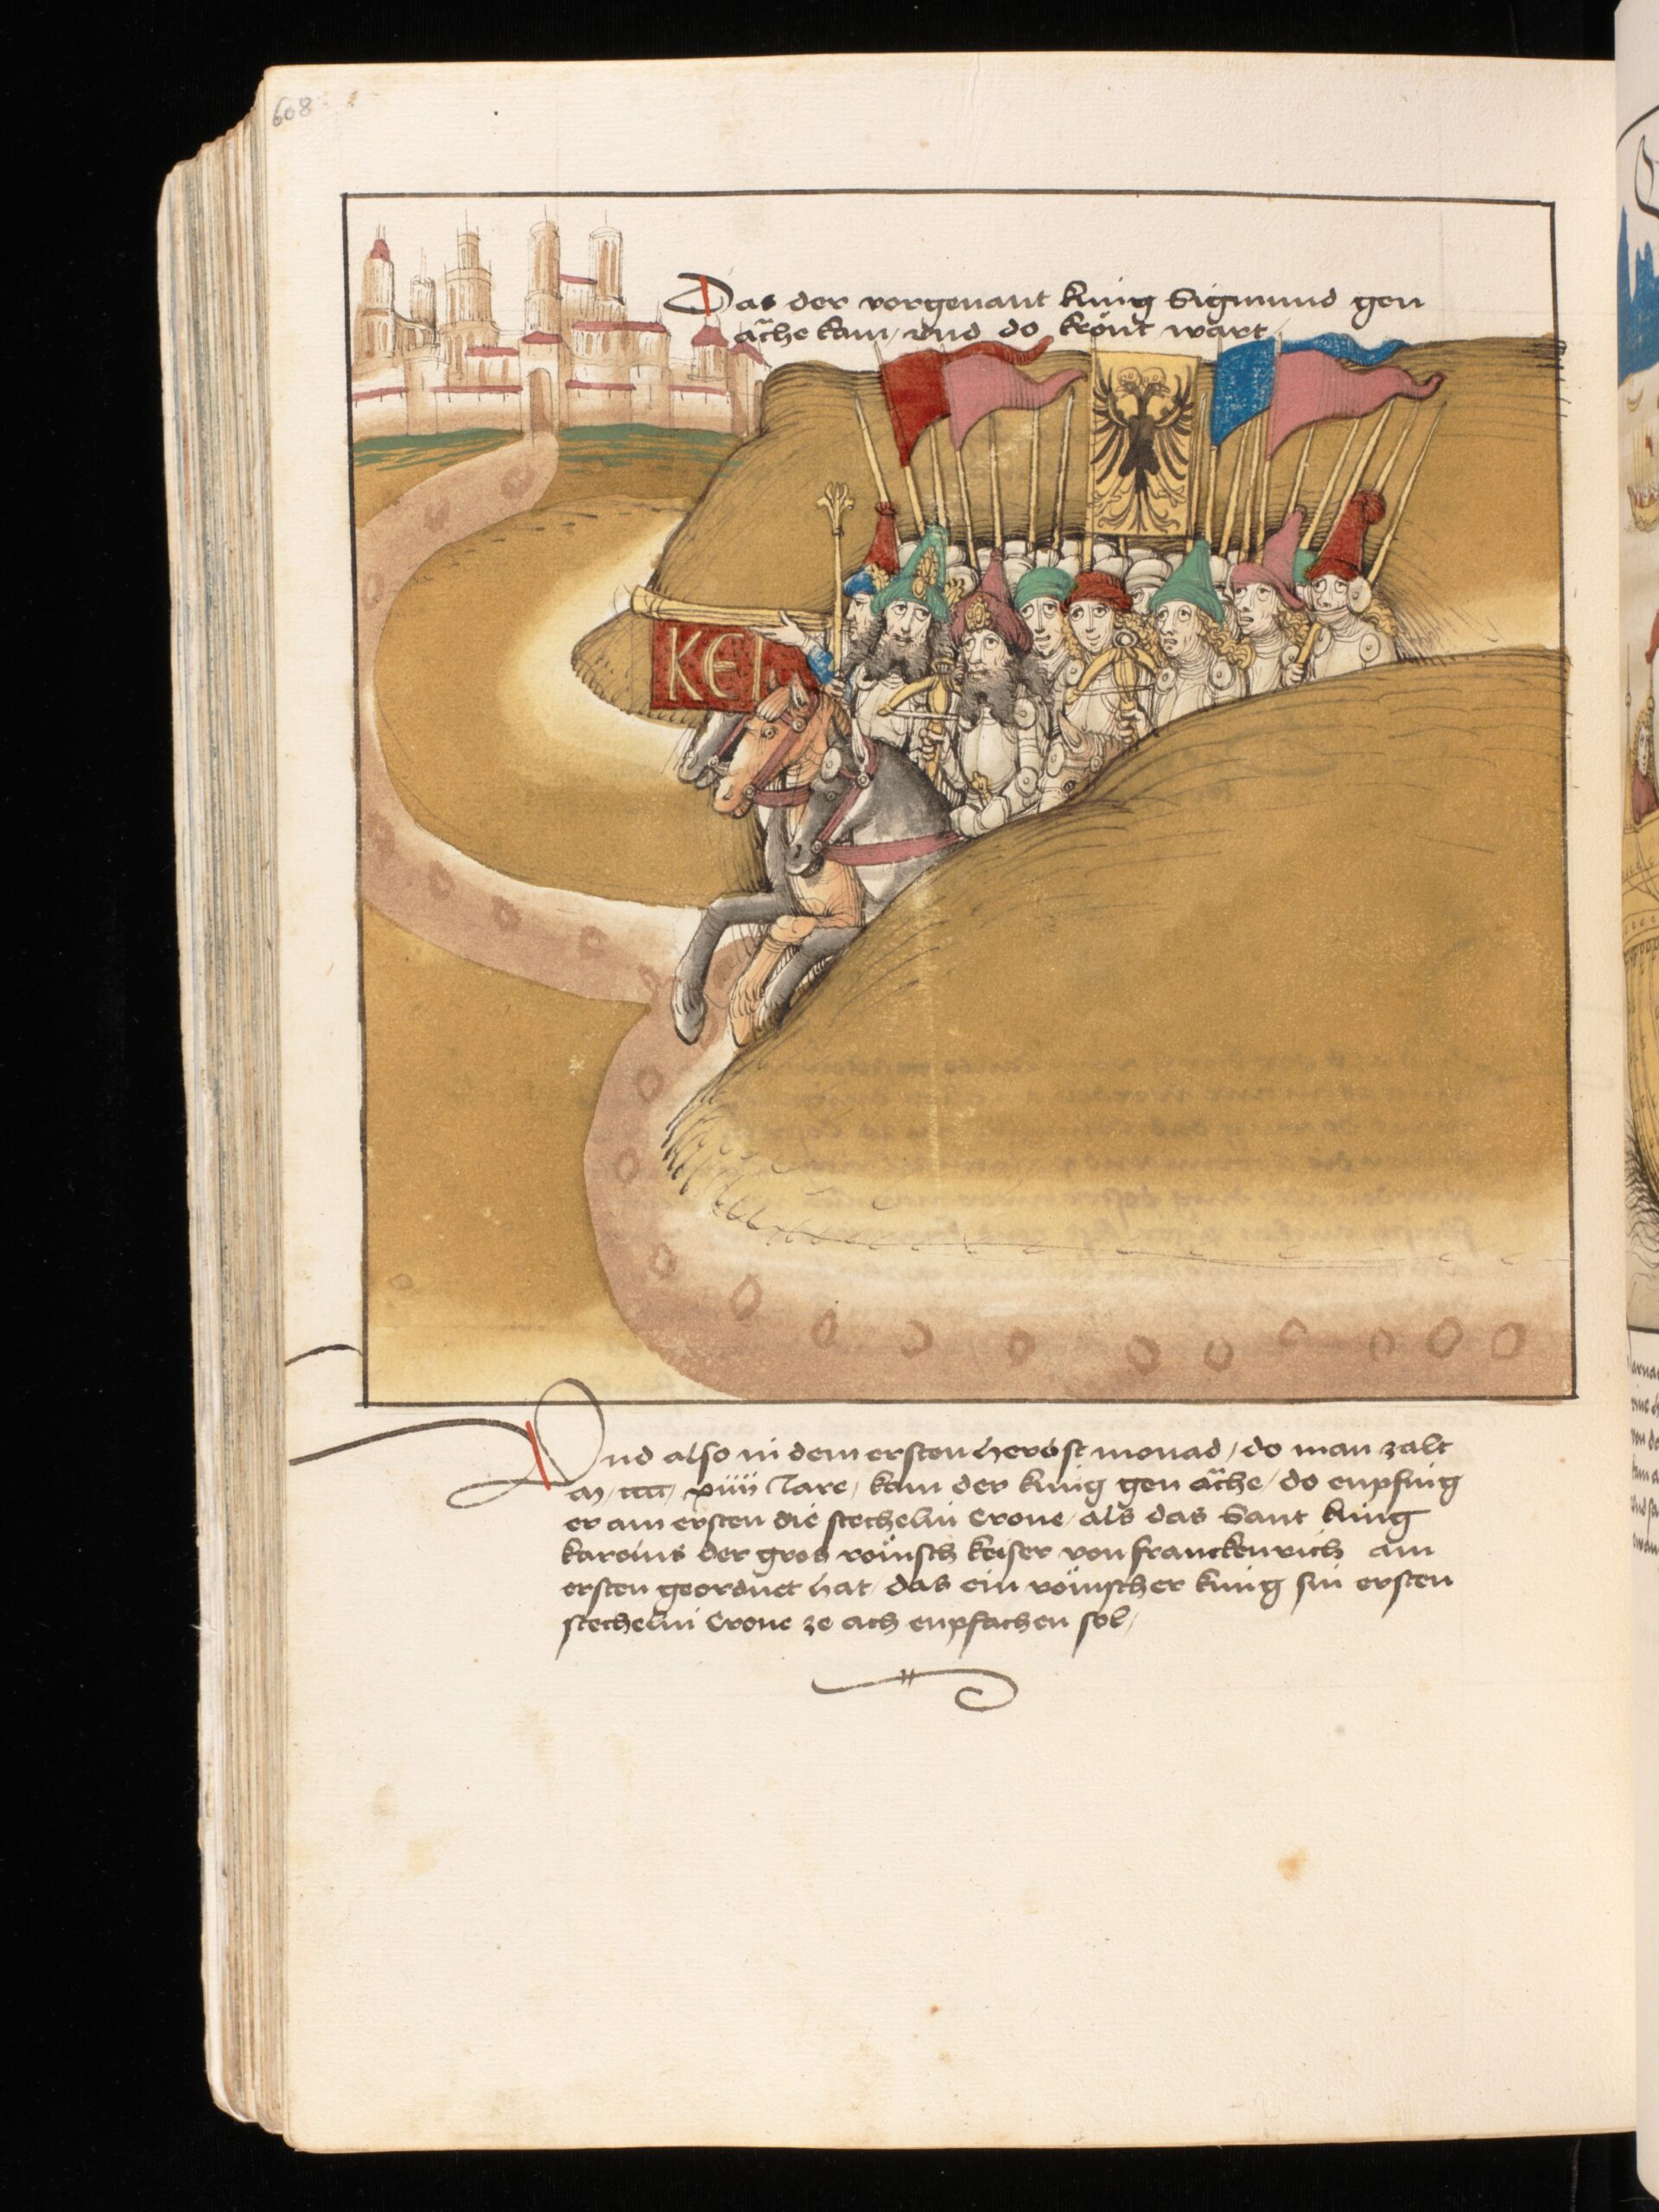 608
Das der vorgenant kung Sigmund gen
ache kam / und do kront wart /
KEI
Und also in dem ersten herbst monad / do man zalt
m / cccc / xiiii Jare / kam der kung gen ache / do enpfing
er am ersten die stechelin Crone / als das Sant kung
karolus der gros römsch keiser von franckenrich am
ersten geordnet hat / das ein römscher kung sin ersten
stechelin Crone ze ach enpfachen sol /